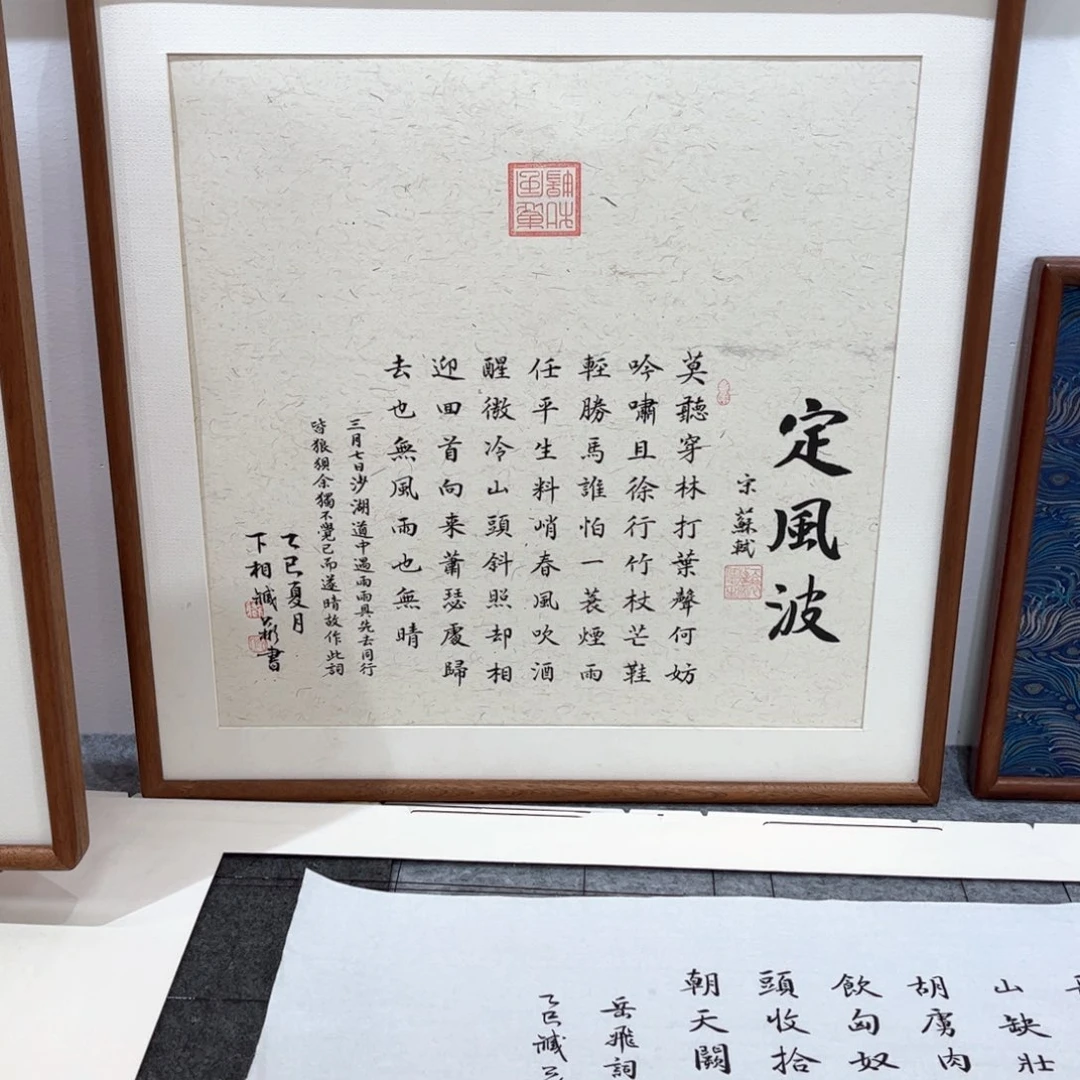 定風波
宋蘇軾
莫聽穿林打葉聲何妨
吟嘯且徐行竹杖芒鞋
輕勝馬誰怕一蓑煙雨
任平生料峭春風吹酒
醒微冷山頭斜照却相
迎回首向来蕭瑟處歸
去也無風雨也無晴
三月七日沙湖道中遇雨雨具先去同行
皆狼狽余獨不覺已而遂晴故作此詞
乙巳夏月
下相臧彩書
山缺壯
胡虜肉
飲匈奴
頭收拾
朝天闕
岳飛詞
乙巳臧